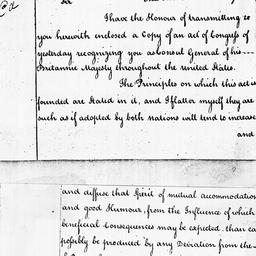 I have the Honour of transmitting to
you herewith enclosed a Copy of an act of Congress of
yesterday recognizing you as Consul General of his
Britannic Majesty throughout the united States.
The Principles on which this act is
founded are Stated in it, and I flatter myself they are
such as if adopted by both nations will tend to increase
and
and diffuse that Spirit of mutual accommodation
and good Humour, from the Influence of which
beneficial Consequences may be expected, than can
possibly be produced by any Deviation from the